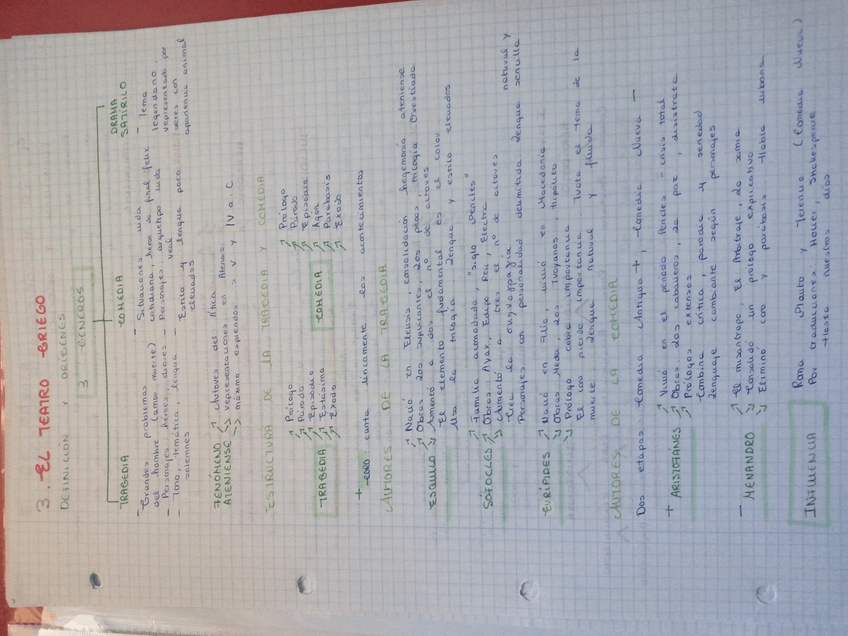 3. EL TEATRO GRIEGO
DEFINICIÓN Y ORÍGENES
3 GÉNEROS
TRAGEDIA
- Grandes problemas
del hombre (amor, muerte)
- Personajes: héroes, dioses
- Tono, temática, lengua
solemnes
COMEDIA
- Situaciones vida
cotidiana, héroe de final feliz
- Personajes arquetipo vida
real
- Estilo y lengua poco
elevados
DRAMA
SATÍRICO
- Tema
legendario
representado por
seres con
apariencia animal
FENÓMENO
ATENIENSE
Autores del Ática
representaciones en Atenas
máximo esplendor s. V y IV a. C
ESTRUCTURA DE LA TRAGEDIA Y COMEDIA
TRAGEDIA
Prólogo
Párodo
Episodio
Estásimo
Éxodo
COMEDIA
Prólogo
Párodo
Episodio
Agón
Parábasis
Éxodo
+ CORO canta líricamente los acontecimientos
AUTORES DE LA TRAGEDIA
ESQUILO
Nació en Eleusis, consolidación hegemonía ateniense
Obras: Los suplicantes, Los persas, trilogía Orestiada
Aumentó a dos el nº de actores
El elemento fundamental es el coro
Usa la trilogía Lengua y estilo elevados
SÓFOCLES
Familia acomodada "siglo Pericles"
Obras: Ayax, Edipo Rey, Electra
Aumentó a tres el nº de actores
Crea la
Personajes con personalidad delimitada Lengua sencilla
natural y
EURÍPIDES
Nació en Filía, murió en Macedonia
Obras: Medea, Los Troyanos, Hipólito
Prólogo cobra importancia
El coro pierde importancia Trata el tema de la
muerte Lengua natural y fluida
AUTORES DE LA COMEDIA
Dos etapas: Comedia Antigua +, Comedia Nueva -
+ ARISTÓFANES
Vivió en el periodo Pericles - crisis total
Obras: Los caballeros, La paz, Lisístrata
Prólogos extensos
Combina crítica, parodia y seriedad
Lenguaje cambiante según personajes
- MENANDRO
El misántropo El Arbitraje, La samia
Consolidó un prólogo explicativo
Eliminó coro y parábasis Habla urbana
INFLUENCIA
Roma Plauto y Terencio (Comedia Nueva)
Por traducciones Molier, Shakespeare
Hasta nuestros días